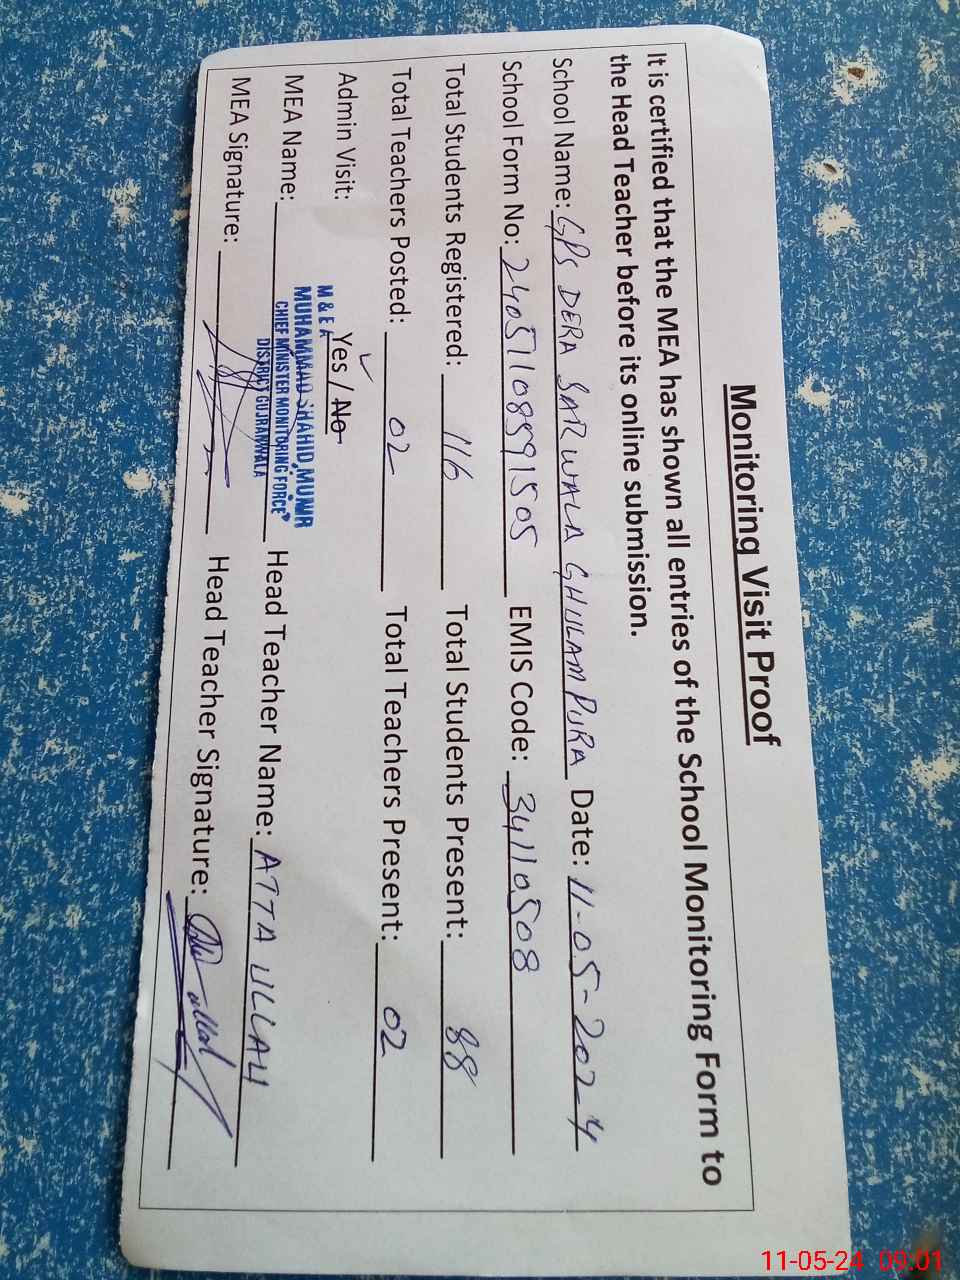 Monitoring Visit Proof
It is certified that the MEA has shown all entries of the School Monitoring Form to
the Head Teacher before its online submission.
School Name: GPS DERA SARWALA GHULAM PURA Date: 11-05-2024
School Form No: 24051108591505 EMIS Code: 34110508
Total Students Registered: 116 Total Students Present: 88
Total Teachers Posted: 02 Total Teachers Present: 02
Admin Visit: Yes / No
M & E A
MUHAMMAD SHAHID MUNIR
CHIEF MINISTER MONITORING FORCE
DISTRICT GUJRANWALA
MEA Name: Head Teacher Name: ATTA ULLAH
MEA Signature: Head Teacher Signature:
11-05-24 09:01